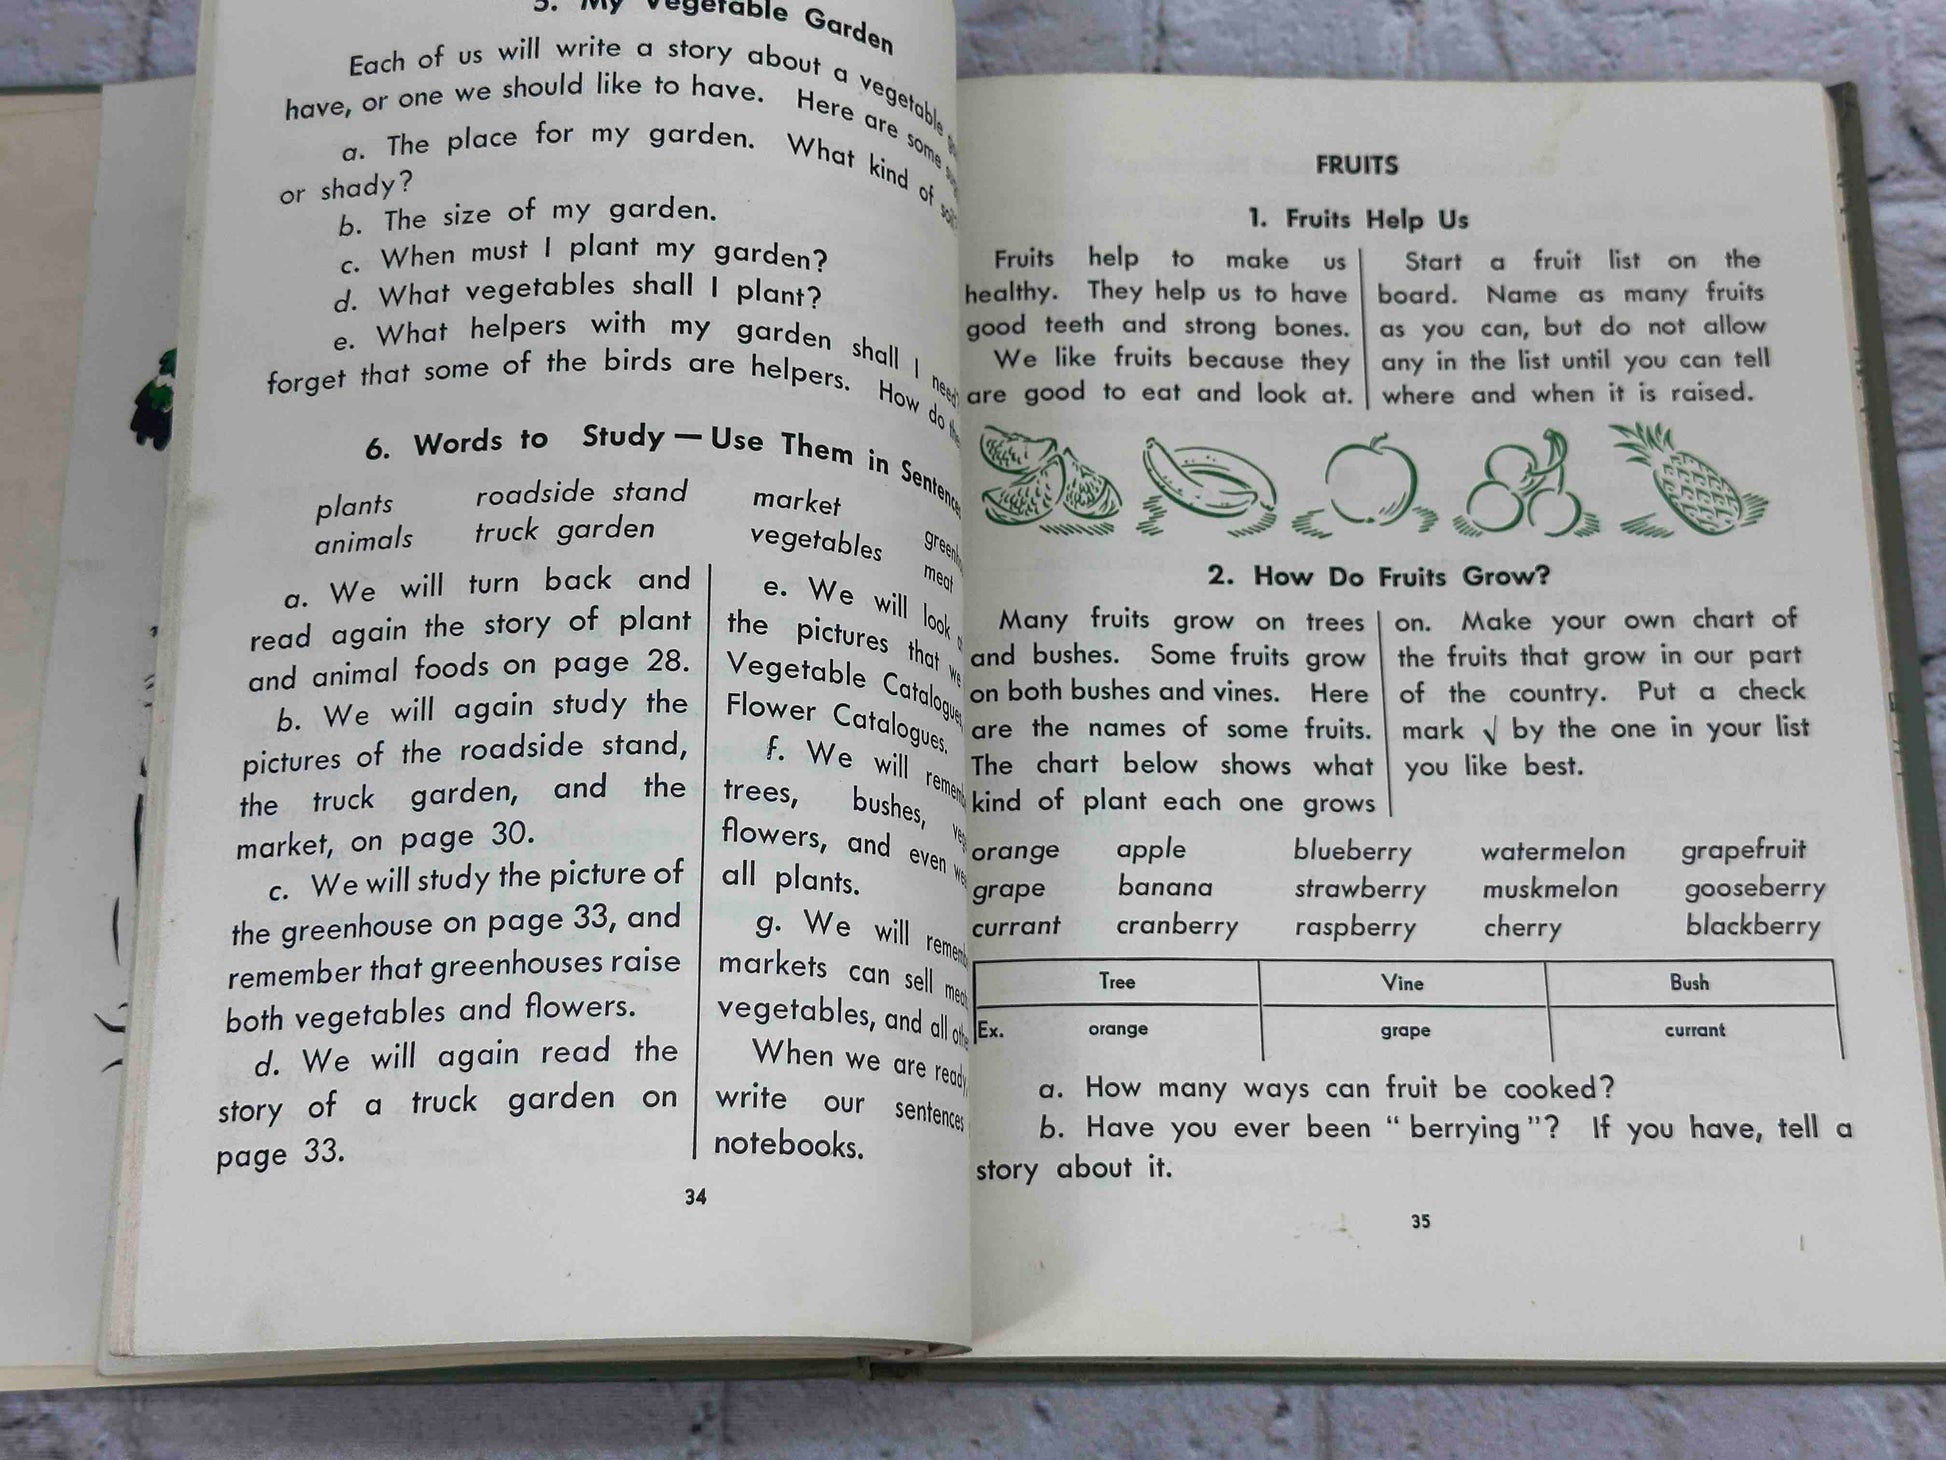 5. My Vegetable Garden
Each of us will write a story about a vegetable
have, or one we should like to have. Here are some
a. The place for my garden. What kind of
or shady?
b. The size of my garden.
c. When must I plant my garden?
d. What vegetables shall I plant?
e. What helpers with my garden shall I need?
forget that some of the birds are helpers. How do
6. Words to Study — Use Them in Sentences
plants roadside stand market
animals truck garden vegetables meat
a. We will turn back and
read again the story of plant
and animal foods on page 28.
b. We will again study the
pictures of the roadside stand,
the truck garden, and the
market, on page 30.
c. We will study the picture of
the greenhouse on page 33, and
remember that greenhouses raise
both vegetables and flowers.
d. We will again read the
story of a truck garden on
page 33.
e. We will look
the pictures that we
Vegetable Catalogues,
Flower Catalogues.
f. We will
trees, bushes,
flowers, and even
all plants.
g. We will
markets can sell
vegetables, and all
When we are ready,
write our sentences
notebooks.
34
FRUITS
1. Fruits Help Us
Fruits help to make us
healthy. They help us to have
good teeth and strong bones.
We like fruits because they
are good to eat and look at.
Start a fruit list on the
board. Name as many fruits
as you can, but do not allow
any in the list until you can tell
where and when it is raised.
2. How Do Fruits Grow?
Many fruits grow on trees
and bushes. Some fruits grow
on both bushes and vines. Here
are the names of some fruits.
The chart below shows what
kind of plant each one grows
on. Make your own chart of
the fruits that grow in our part
of the country. Put a check
mark √ by the one in your list
you like best.
orange apple blueberry watermelon grapefruit
grape banana strawberry muskmelon gooseberry
currant cranberry raspberry cherry blackberry
Tree Vine Bush
Ex. orange grape currant
a. How many ways can fruit be cooked?
b. Have you ever been “berrying”? If you have, tell a
story about it.
35